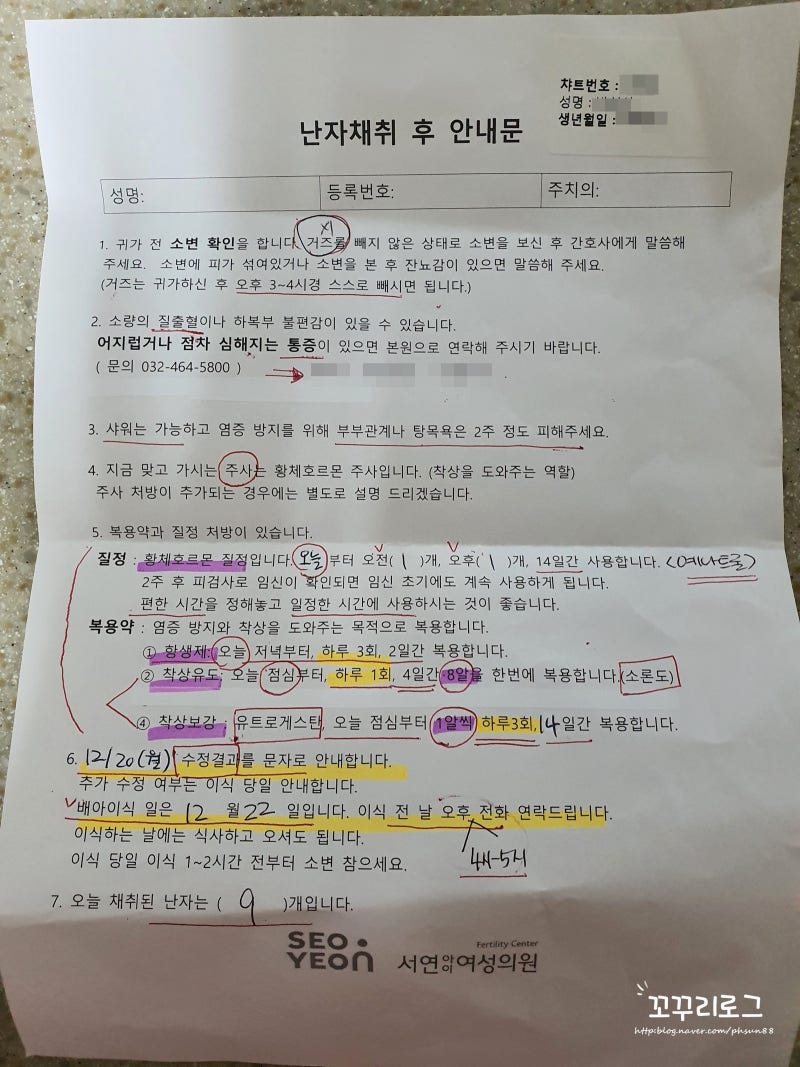 차트번호 :
성명 :
생년월일 :
난자채취 후 안내문
성명: 등록번호: 주치의:
1. 귀가 전 소변 확인을 합니다. 거즈를 빼지 않은 상태로 소변을 보신 후 간호사에게 말씀해
주세요. 소변에 피가 섞여있거나 소변을 본 후 잔뇨감이 있으면 말씀해 주세요.
(거즈는 귀가하신 후 오후 3~4시경 스스로 빼시면 됩니다.)
2. 소량의 질출혈이나 하복부 불편감이 있을 수 있습니다.
어지럽거나 점차 심해지는 통증이 있으면 본원으로 연락해 주시기 바랍니다.
( 문의 032-464-5800 )
3. 샤워는 가능하고 염증 방지를 위해 부부관계나 탕목욕은 2주 정도 피해주세요.
4. 지금 맞고 가시는 주사는 황체호르몬 주사입니다. (착상을 도와주는 역할)
주사 처방이 추가되는 경우에는 별도로 설명 드리겠습니다.
5. 복용약과 질정 처방이 있습니다.
질정 : 황체호르몬 질정입니다. 오늘 부터 오전( 1 )개, 오후( 1 )개, 14일간 사용합니다. <예나트론>
2주 후 피검사로 임신이 확인되면 임신 초기에도 계속 사용하게 됩니다.
편한 시간을 정해놓고 일정한 시간에 사용하시는 것이 좋습니다.
복용약 : 염증 방지와 착상을 도와주는 목적으로 복용합니다.
① 항생제: 오늘 저녁부터, 하루 3회, 2일간 복용합니다.
② 착상유도: 오늘 점심부터, 하루 1회, 4일간 8알을 한번에 복용합니다.(소론도)
④ 착상보강 : 유트로게스탄, 오늘 점심부터 1알씩 하루3회, 14일간 복용합니다.
6. 12/20(월) 수정결과를 문자로 안내합니다.
추가 수정 여부는 이식 당일 안내합니다.
배아이식 일은 12 월 22 일입니다. 이식 전 날 오후 전화 연락드립니다.
이식하는 날에는 식사하고 오셔도 됩니다.
4시-5시
이식 당일 이식 1~2시간 전부터 소변 참으세요.
7. 오늘 채취된 난자는 ( 9 )개입니다.
SEO
YEON
Fertility Center
서연아이여성의원
꼬꾸리로그
http:blog.naver.com/phsun88